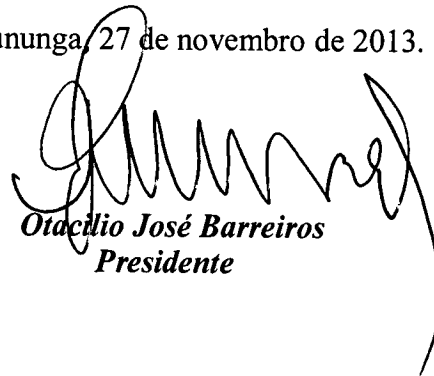 ununga, 27 de novembro de 2013.
Otacílio José Barreiros
Presidente